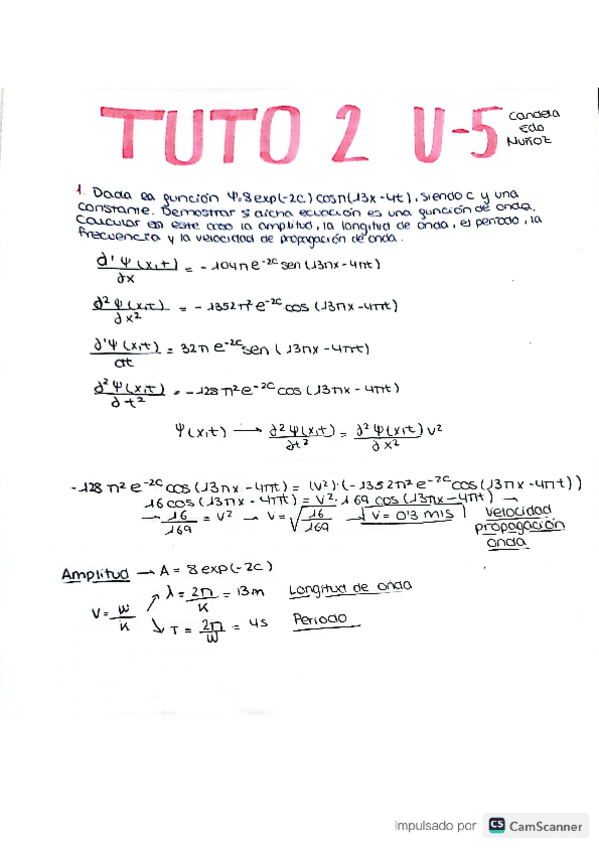 TUTO 2 U-5
Candela
Edo
Nuñoz
1. Dada la función Ψ=8exp(-2C)cosπ(13x-4t), siendo c y una
constante. Demostrar si dicha ecuación es una función de onda.
Calcular en este caso la amplitud, la longitud de onda, el periodo, la
frecuencia y la velocidad de propagación de onda.
∂'Ψ(x,t)/∂x = -104π e^-2C sen(13πx-4πt)
∂²Ψ(x,t)/∂x² = -1352π² e^-2C cos(13πx-4πt)
∂'Ψ(x,t)/∂t = 32π e^-2C sen(13πx-4πt)
∂²Ψ(x,t)/∂t² = -128π² e^-2C cos(13πx-4πt)
Ψ(x,t) → ∂²Ψ(x,t)/∂t² = ∂²Ψ(x,t)/∂x² v²
-128π² e^-2C cos(13πx-4πt) = (v²)·(-1352π² e^-2C cos(13πx-4πt))
16cos(13πx-4πt) = v²·169 cos(13πx-4πt) →
→ 16/169 = v² → v=√16/169 → v=0'3 m/s
velocidad
propagación
onda
Amplitud → A = 8exp(-2C)
λ = 2π/K = 13m Longitud de onda
V = w/K
T = 2π/w = 4s Periodo
impulsado por CS CamScanner